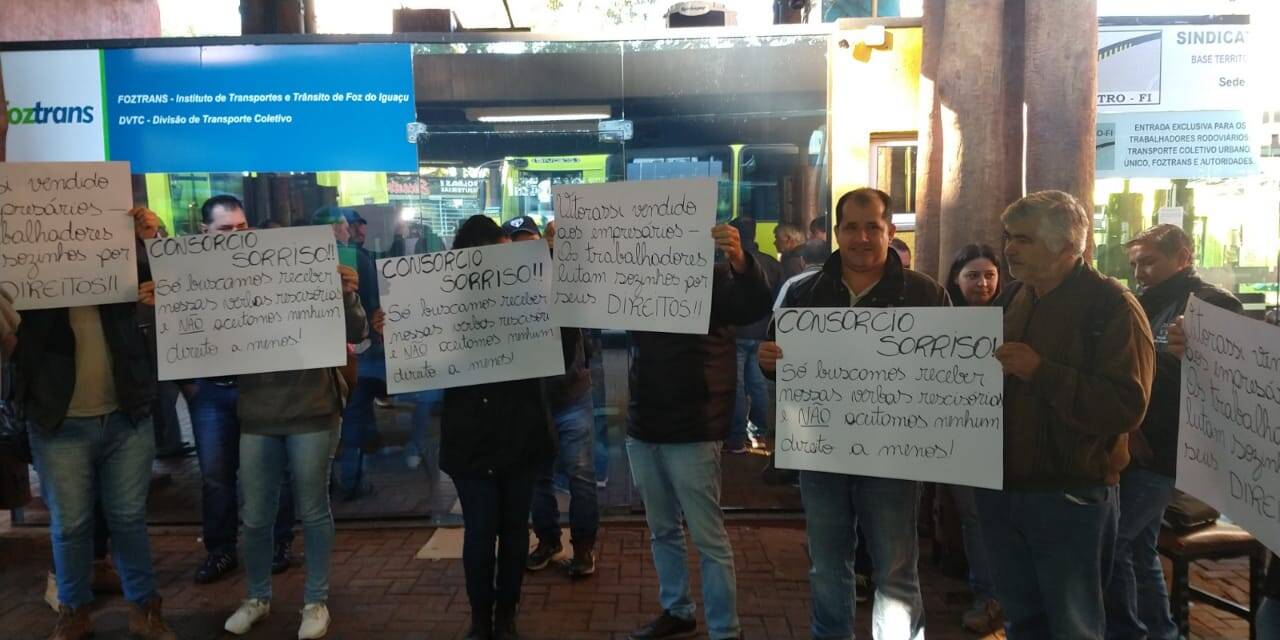 foztrans
FOZTRANS - Instituto de Transportes e Trânsito de Foz do Iguaçu
DVTC - Divisão de Transporte Coletivo
SINDICA
BASE TERRITO
Sede
TRO - FI
ENTRADA EXCLUSIVA PARA OS
TRABALHADORES RODOVIÁRIOS
TRANSPORTE COLETIVO URBANO
ÚNICO, FOZTRANS E AUTORIDADES.
si vendido
presários -
balhadores
sozinhos por
DIREITOS!!
CONSORCIO
SORRISO!!
Só buscamos receber
nossas verbas rescisória
e NÃO aceitamos nenhum
direito a menos!
CONSORCIO
SORRISO!!
Só buscamos receber
nossas verbas rescisori
e NÃO aceitamos nenhum
direito a menos!
Vitorassi vendido
aos empresários -
Os trabalhadores
lutam sozinhos por
seus DIREITOS!!
CONSORCIO
SORRISO!
Só buscamos receber
nossas verbas rescisória
e NÃO aceitamos nenhum
direito a menos!
Vitorassi ven
aos empresá
Os trabalha
lutam sozinh
seus DIREI